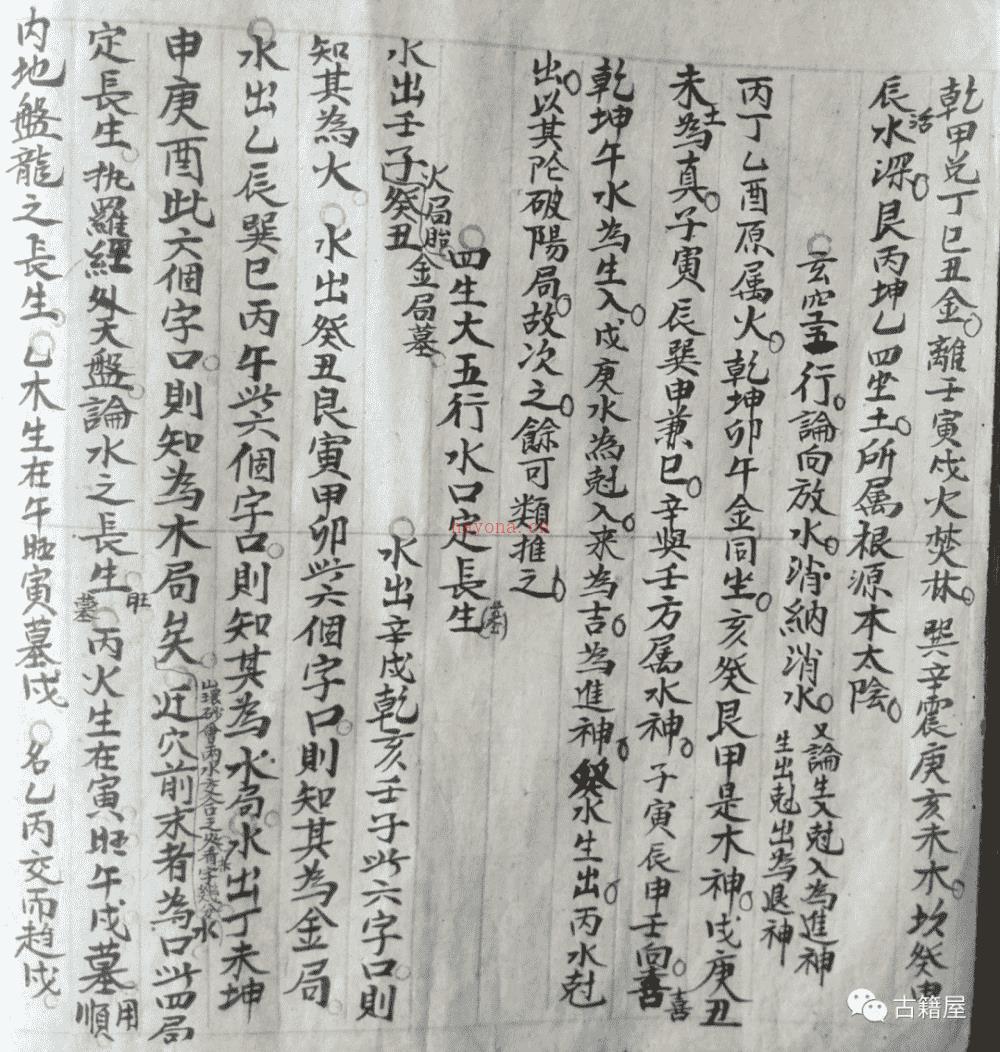 乾甲兑丁巳丑金離壬寅戌火焚林巽辛震庚亥未木坎癸申
辰水深活艮丙坤乙四坐土所属根源本太陰
玄空五行論向放水消納消水又論生入尅入為進神
生出尅出為退神
丙丁乙酉原属火乾坤卯午金同坐亥癸艮甲是木神戌庚丑
未為土真子寅辰巽申兼巳辛與壬方属水神子寅辰申壬向喜喜
乾坤午水為生入戌庚水為尅入来為吉為進神水生出丙水尅
出以其陰破陽局故次之餘可類推之
四生大五行水口定長生(墓)
水出壬子癸丑火局胎金局墓
水出辛戌乾亥壬子此六字口則
知其為火水出癸丑艮寅甲卯此六個字口則知其為金局
水出乙辰巽巳丙午此六個字口則知其為水局水出丁未坤
申庚酉此六個字口則知為木局矣近穴前求者為口此四局
定長生执羅經外天盤論水之長生旺墓丙火生在寅旺午戌墓用順
内地盤龍之長生乙木生在午旺寅墓戌名乙丙交而趋戌
nayona.cn
古籍屋